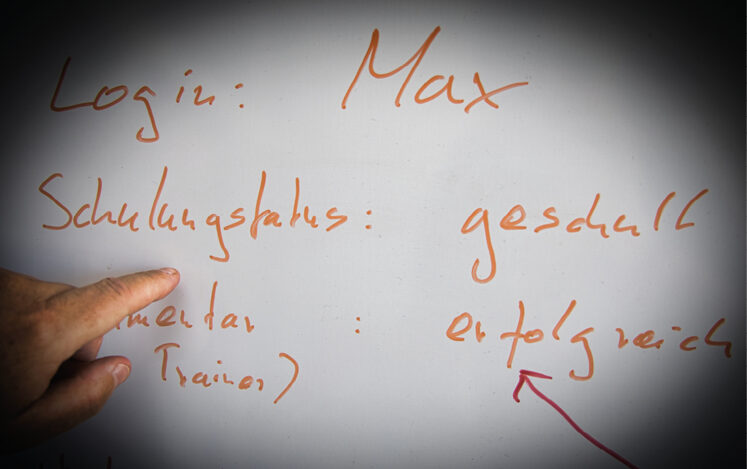 Login: Max
Schulungsstatus: geschult
mentar : erfolgreich
Trainer)